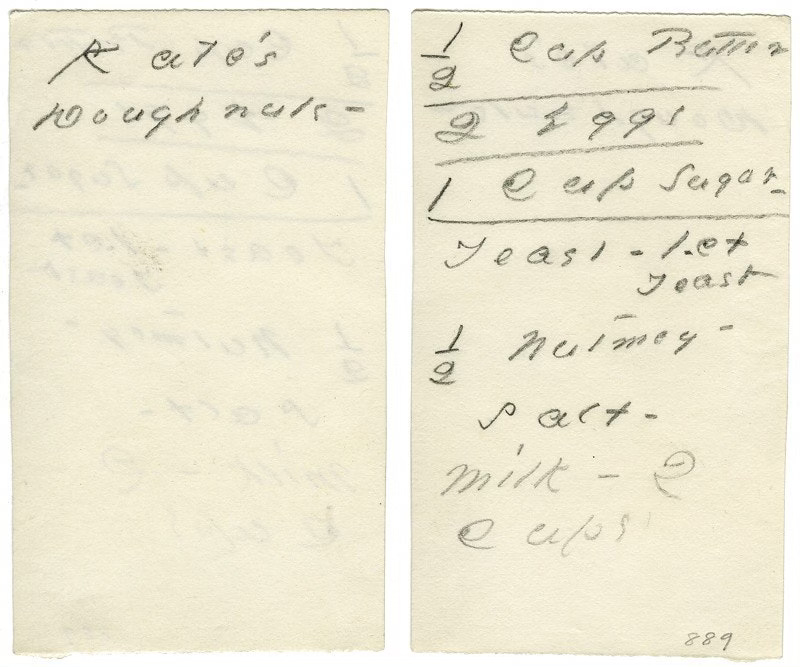 Kate's
Doughnuts -
1/2 Cup Butter
2 Eggs
1 Cup Sugar
Yeast - 1.ct
Yeast
1/2 Nutmeg -
Salt -
Milk - 2
Cups
889